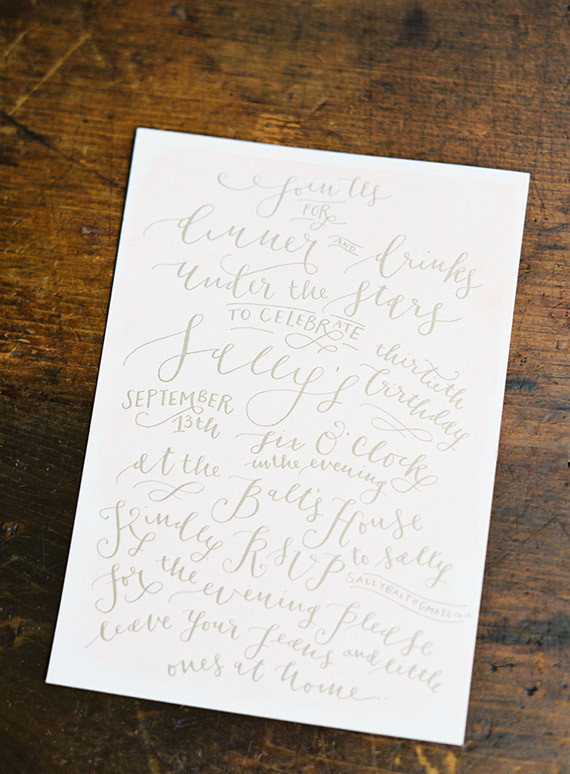 Join Us
FOR
dinner AND drinks
under the stars
TO CELEBRATE
Sally's thirtieth birthday
SEPTEMBER 13th
six O'Clock
in the evening
at the Balt's House
Kindly RSVP to Sally
SALLYBALT@GMAIL.COM
for the evening please
leave your jeans and little
ones at home